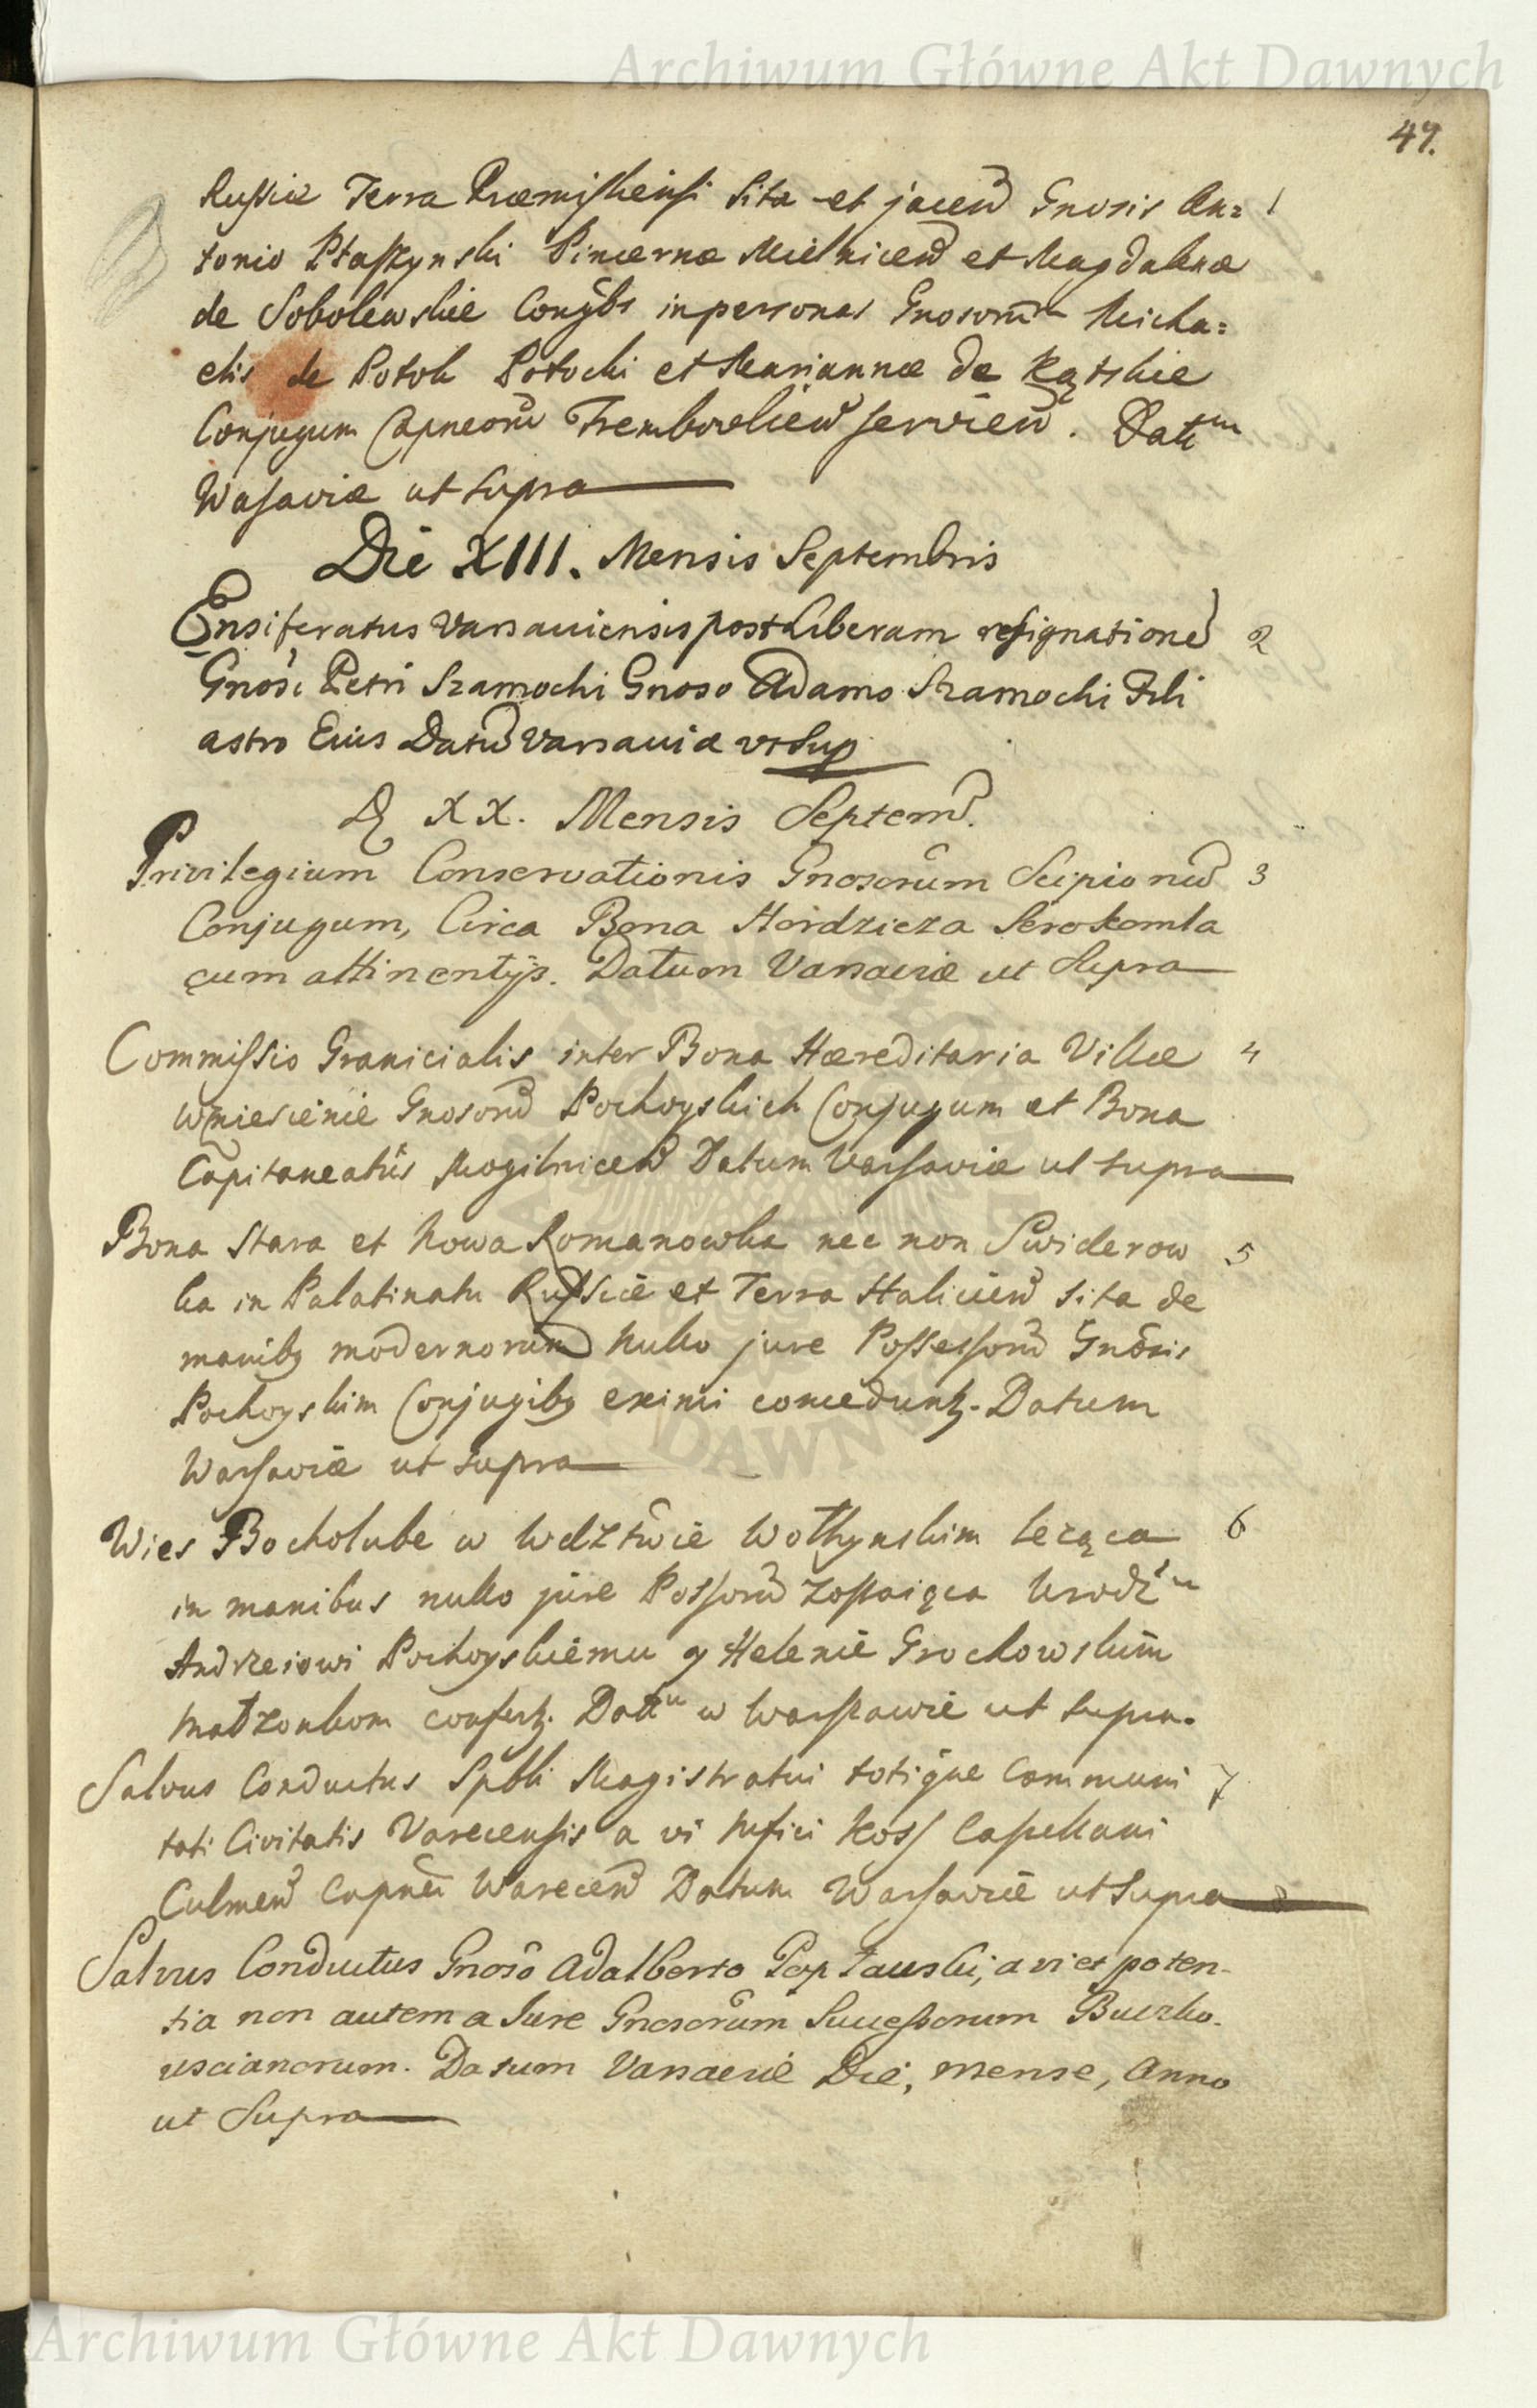 Archiwum Główne Akt Dawnych
49.
Russiæ Terra Præmislensi sita et jacen Gnosis An= 1
tonio Ptaszynski Pincernæ Mielnicen et Magdalenæ
de Sobolewskie Conjgbs in personas Gnosorum Micha=
elis de Potok Potocki et Mariannæ de Kątskie
Conjugum Capneorum Trembowlien servien. Datum
Wasaviæ ut supra
Die XIII. Mensis Septembris
Ensiferatus Varsauiensis post Liberam resignatione 2
Gnosi Petri Szamocki Gnoso Adamo Szamocki Fili
astro Eius Datum Varsauiæ vt Sup
D XX. Mensis Septem.
Privilegium Conservationis Gnosorum Scipionum 3
Conjugum, Circa Bona Hordzieza Serokomla
cum attinentijs. Datum Varsaviæ ut Supra
Commissio Granicialis inter Bona Hæreditaria Villæ 4
Wmiescienie Gnosorum Pochoyskich Conjugum et Bona
Capitaneatus Mogilnicen Datum Varsaviæ ut supra
Bona Stara et Nowa Romanowka nec non Swiderow 5
ka in Palatinatu Russiæ et Terra Halicien sita de
manibq modernorum nullo jure Possessorum Gnosis
Pochoyskim Conjugibq eximi conceduntq. Datum
Warsaviæ ut supra
Wies Bocholube w Wdztwie Wołłynskim leząca 6
in manibus nullo jure Possorum zostaiąca Urodz
Andrzeiowi Pochoyskiemu y Helenie Grochowskim
małzonkom confertq. Dattu w Warszawie ut supra.
Salvus Conductus Spbli Magistratui totique Communi 7
tati Civitatis Varecensis a vi Mfici Koss Castellani
Culmen Capnei Warecen Datum Warsaviæ ut Supra 8
Salvus Conductus Gnoso Adalberto Popławski, a vi et poten-
tia non autem a Jure Gnosorum Sucessorum Buczko-
usciancrum. Datum Varsaviæ Die, mense, Anno
ut Supra
Archiwum Główne Akt Dawnych